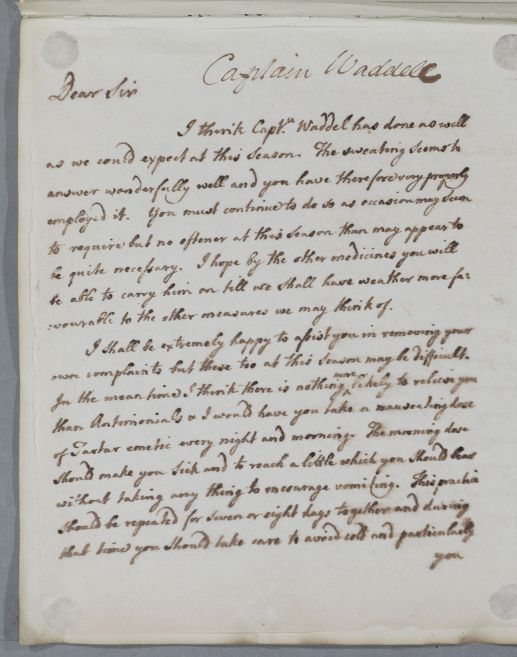 Captain Waddell
Dear Sir
I think Capt.n Waddel has done as well
as we could expect at this season. The sweating seems to
answer wonderfully well and you have therefore very properly
employed it. You must continue to do so as occasion may seem
to require but no oftener at this season than may appear to
be quite necessary. I hope by the other medicines you will
be able to carry him on till we shall have weather more fa-
-vourable to the other measures we may think of.
I shall be extremely happy to assist you in removing your
own complaints but these too at this season may be difficult.
In the mean time I think there is nothing more likely to relieve you
than Antimonials & I would have you take a nauseating dose
of Tartar emetic every night and morning. The morning dose
should make you sick and to reach a little which you should bear
without taking any thing to encourage vomiting. This practice
should be repeated for seven or eight days together and during
that time you should take care to avoid cold and particularly
you